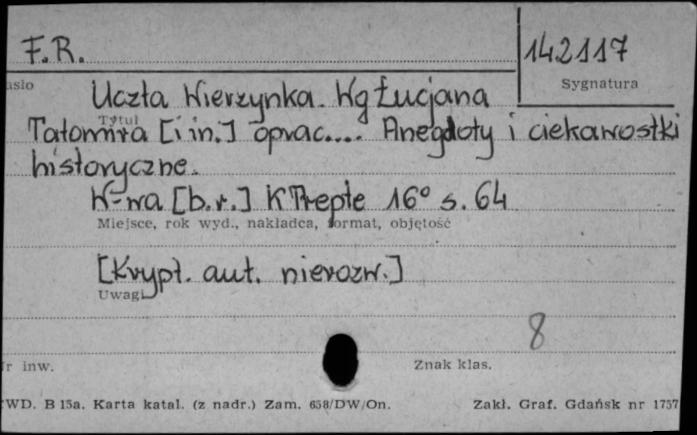 F.R.
142117
asło
Sygnatura
Uczta Wierzynka. Wg Łucjana
Tytuł
Tatomira [i in.] oprac.... Anegdoty i ciekawostki
historyczne.
W-wa [b.r.] K Trepte 16° s. 64
Miejsce, rok wyd., nakładca, format, objętość
[Krypt. aut. nierozw.]
Uwagi
8
r inw.
Znak klas.
WD. B 15a. Karta katal. (z nadr.) Zam. 658/DW/On.
Zakł. Graf. Gdańsk nr 1757